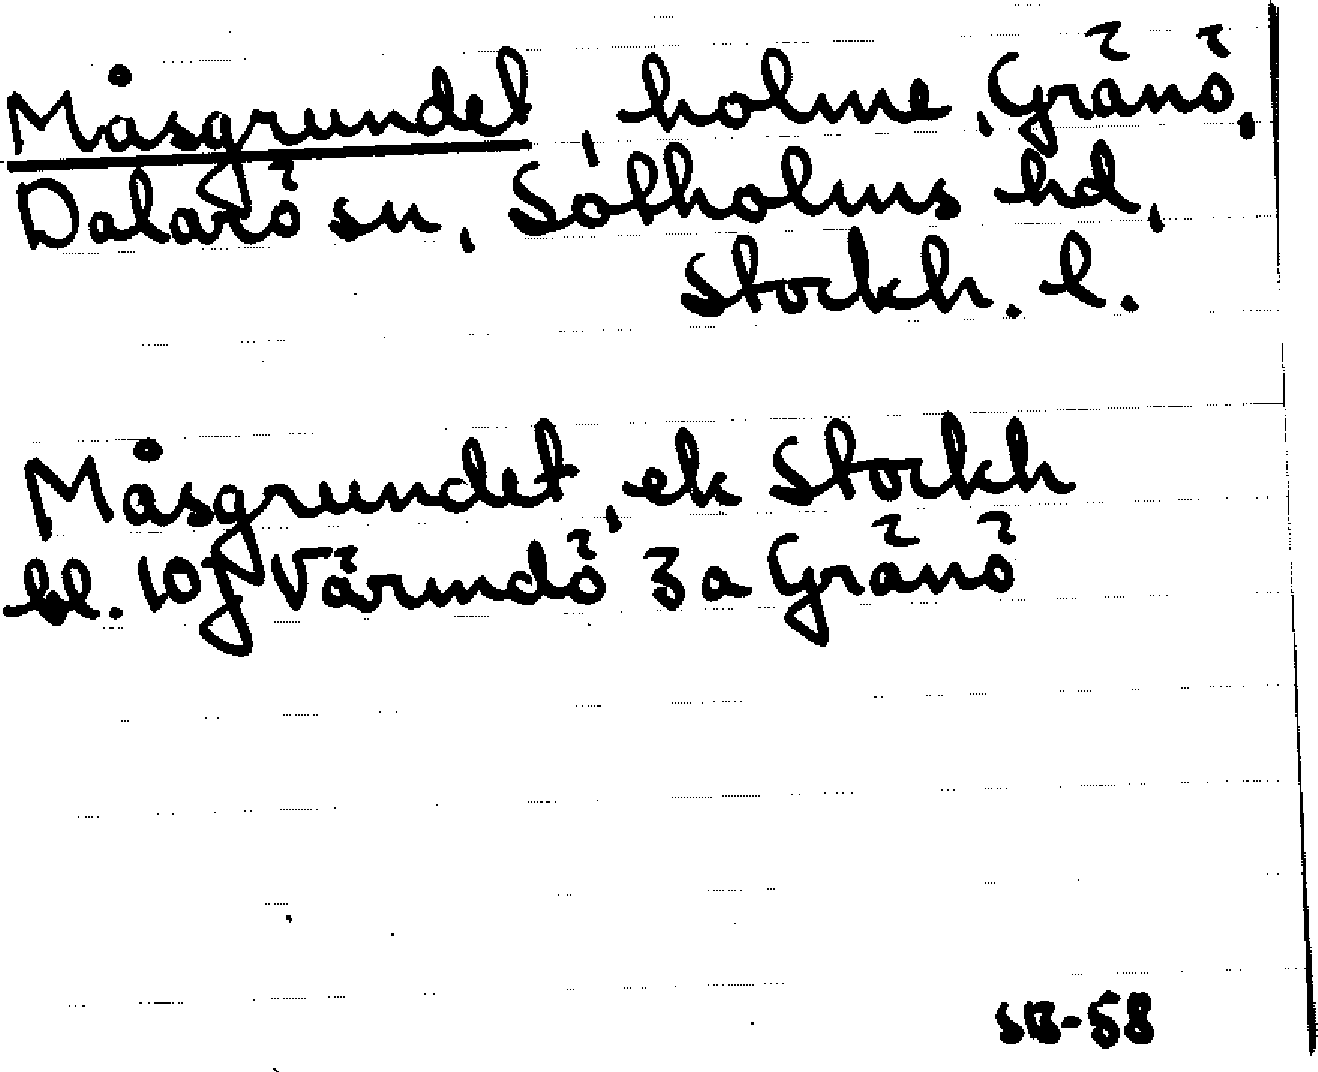 Måsgrundet, holme, Gränö,
Dalarö sn, Sotholms hd,
Stockh. l.
Måsgrundet, ek Stockh
bl. 10j Värmdö 3a Gränö